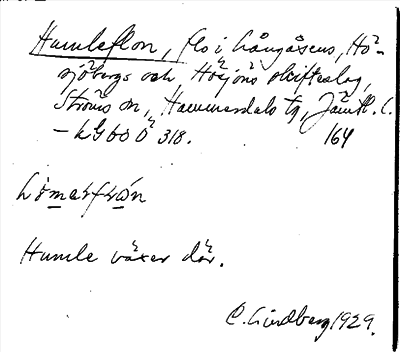 Humleflon, flo i Långåsens, Hö-
sjöbergs och Höjöns skifteslag,
Ströms sn, Hammerdals tg, Jämtl. L.
– kG bo Ö 318. 164
Humle växer där.
C. Lindberg 1929.